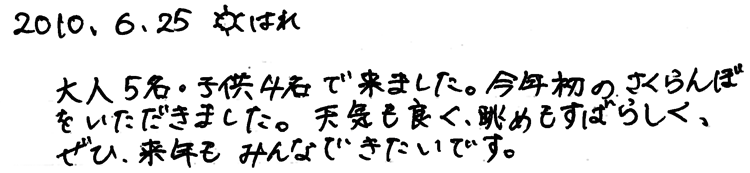 2010.6.25 ☼はれ
大人5名・子供4名で来ました。今年初のさくらんぼ
をいただきました。天気も良く、眺めもすばらしく、
ぜひ、来年もみんなできたいです。